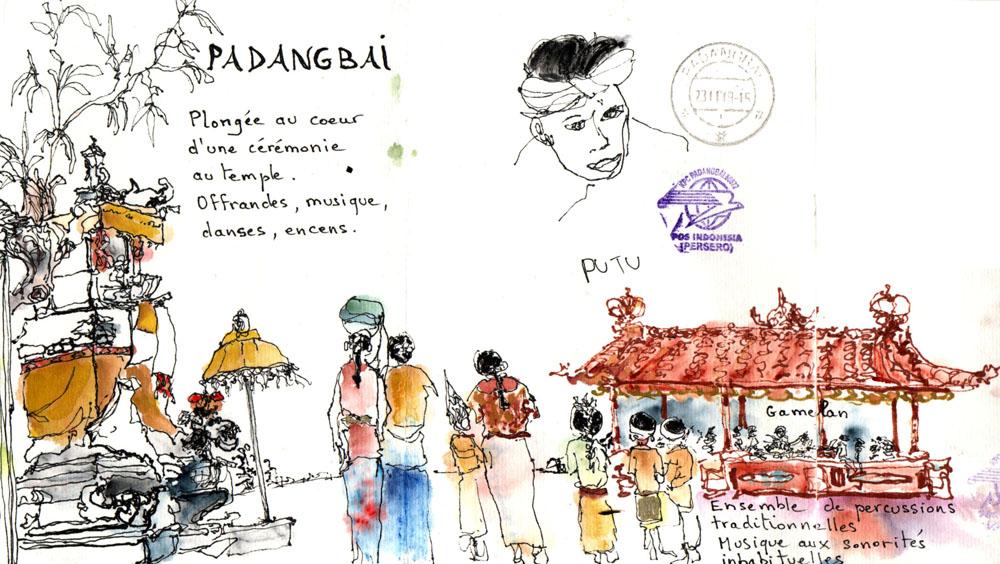 PADANGBAI
Plongée au coeur
d'une cérémonie
au temple.
Offrandes, musique,
danses, encens.
PUTU
POS INDONESIA
(PERSERO)
Gamelan
Ensemble de percussions
traditionnelles
Musique aux sonorités
inhabituelles